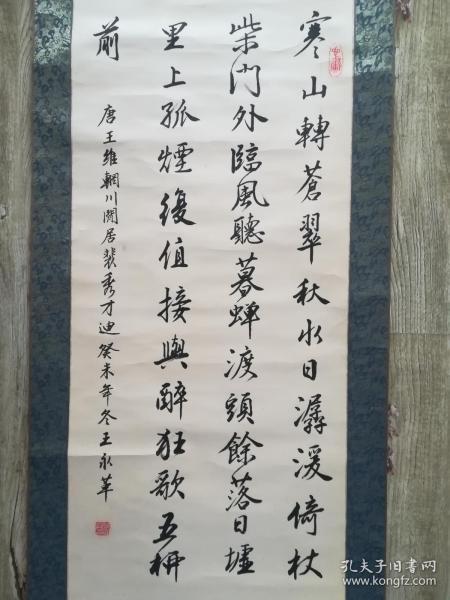 寒山轉蒼翠秋水日潺湲倚杖
柴門外臨風聽暮蟬渡頭餘落日墟
里上孤煙復值接輿醉狂歌五柳
前
唐王維輞川閑居裴秀才迪癸未年冬王永革
孔夫子旧书网
www.kongfz.com